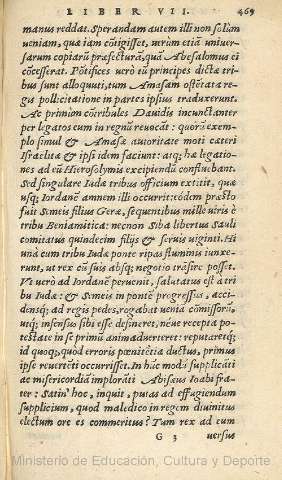 LIBER VII. 469
manus reddat. Sperandam autem illi non solùm
ueniam, quæ iam cõtigisset, uerùm etiã uniuer-
sarum copiarũ præfecturã, quã Absalomus ei
cõcesserat. Põtifices uerò eũ principes dictæ tri-
bus sunt alloquuti, tum Amasam ostẽtata re-
gis pollicitatione in partes ipsius traduxerunt.
Ac primùm cõtribules Dauidis incunctanter
per legatos eum in regnũ reuocãt: quorũ exem-
plo simul & Amasæ autoritate moti cæteri
Israëlitæ & ipsi idem faciunt: atq; hæ legatio-
nes ad eũ Hierosolymis excipiendũ confluebant.
Sed singulare Iudæ tribus officium extitit, quæ
usq; Iordanẽ amnem illi occurrit: eodẽm præstò
fuit Semeis filius Geræ, sequentibus mille uiris è
tribu Beniamitica: necnon Siba libertus Sauli
comitatus quindecim filijs & seruis uiginti. Hi
unà cum tribu Iudæ ponte ripas fluminis iunxe-
runt, ut rex cũ suis absq; negotio trãsire posset.
Vt uerò ad Iordanẽ peruenit, salutatus est à tri
bu Iudæ: & Semeis in pontẽ progressus, acci-
densq; ad regis pedes, rogabat uenia cõmissorũ,
utq; infensus sibi esse desineret, néue recepta po-
testate in se primũ animaduerteret: reputaretq;
id quoq;, quòd erroris pœnitẽtia ductus, primus
ipse reuertẽti occurrisset. In hũc modũ supplicãti
ac misericordiã implorãti Abisæus Ioabi fra-
ter: Satin' hoc, inquit, putas ad effugiendum
supplicium, quod maledico in regem diuinitus
electum ore es commeritus? Tum rex ad eum
G 3 uersus
Ministerio de Educación, Cultura y Deporte